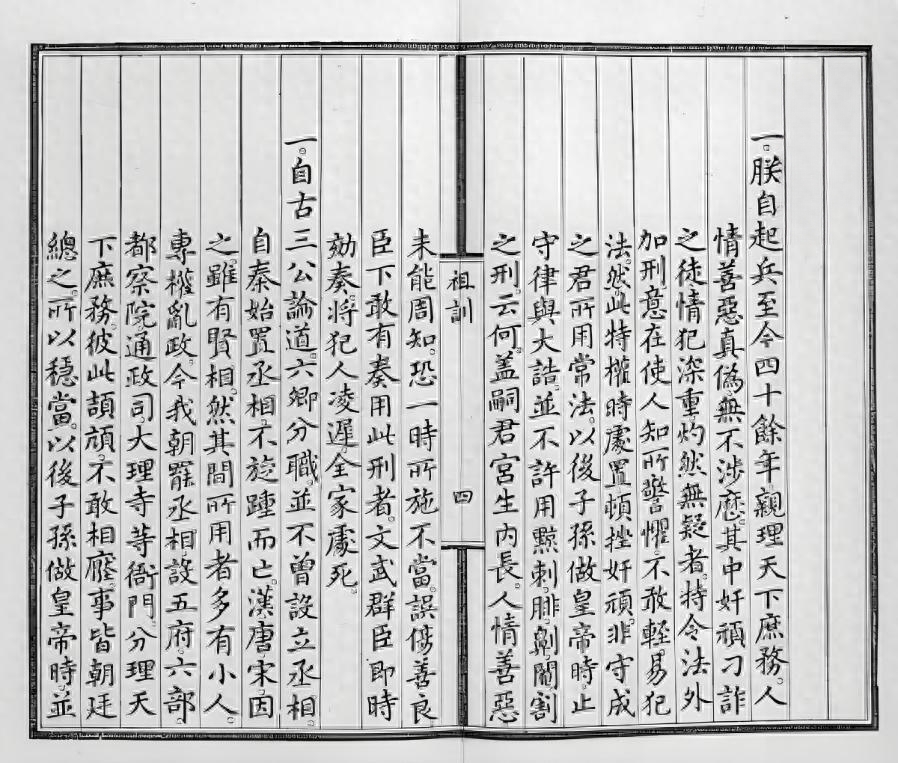 一。朕自起兵至今四十餘年。親理天下庶務。人
情善惡真僞。無不涉歷。其中奸頑刁詐
之徒。情犯深重。灼然無疑者。特令法外
加刑。意在使人知所警懼。不敢輕易犯
法。然此特權時處置。頓挫奸頑。非守成
之君所用常法。以後子孫做皇帝時。止
守律與大誥。並不許用黥刺。腓。劓。閹。割
之刑。云何。盖嗣君宮生內長。人情善惡
未能周知。恐一時所施不當。誤傷善良
臣下敢有奏用此刑者。文武群臣即時
劾奏。將犯人凌遲。全家處死。
一。自古三公論道。六卿分職。並不曾設立丞相。
自秦始置丞相。不旋踵而亡。漢唐宋因
之。雖有賢相。然其間所用者多有小人。
專權亂政。今我朝罷丞相。設五府。六部。
都察院。通政司。大理寺等衙門。分理天
下庶務。彼此頡頏。不敢相壓。事皆朝廷
總之。所以穩當。以後子孫做皇帝時。並
祖訓
四